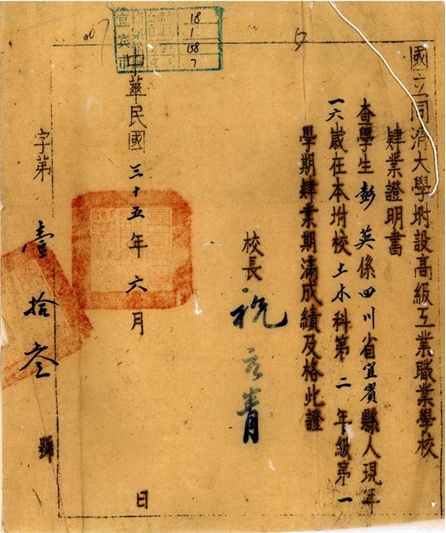 國立同濟大學坿設高級工業職業學校
肄業證明書
查學生彭英係四川省宜賓縣人現年
一六歲在本坿校土木科第二年級第一
學期肄業期滿成績及格此證
校長 祝元青
中華民國三十五年六月 日
字第壹拾叁號
宜賓市
18
1
158
7